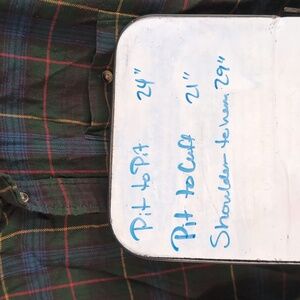 Pit to Pit 24"
Pit to Cuff 21"
Shoulder to hem 29"